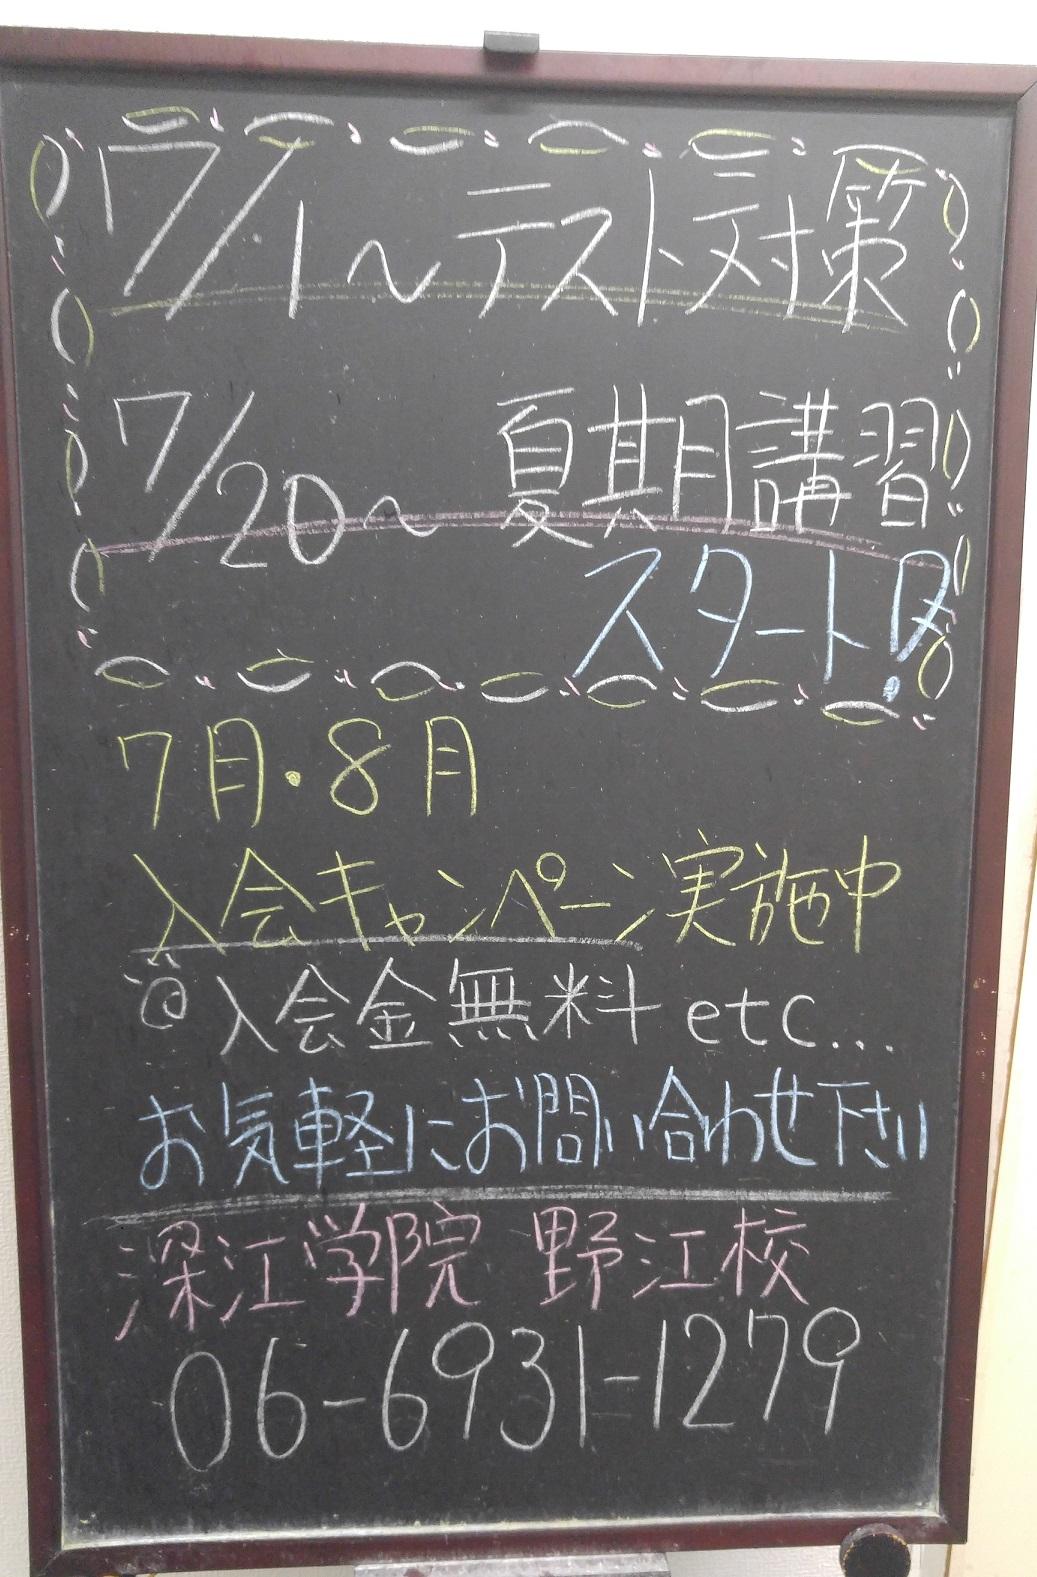 7/1~テスト対策
7/20~ 夏期講習
スタート!!
7月・8月
入会キャンペーン実施中
@入会金無料 etc...
お気軽にお問い合わせ下さい
深江学院 野江校
06-6931-1279